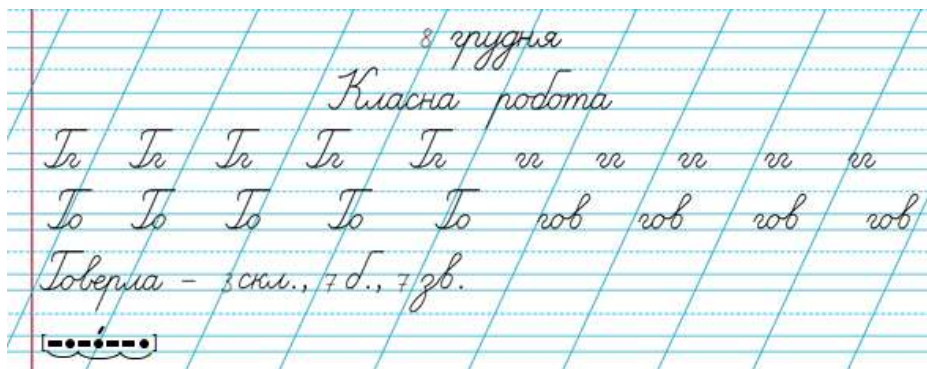 8 грудня
Класна робота
Гг Гг Гг Гг Гг гг гг гг гг гг
Го Го Го Го Го гов гов гов гов
Говерла – 3 скл., 7 б., 7 зв.
[–•–•́––•]